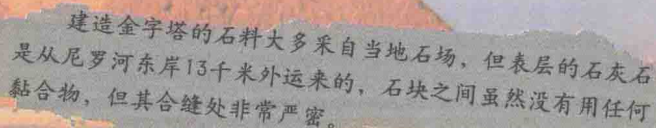 建造金字塔的石料大多采自当地石场，但表层的石灰石
是从尼罗河东岸13千米外运来的，石块之间虽然没有用任何
黏合物，但其合缝处非常严密。